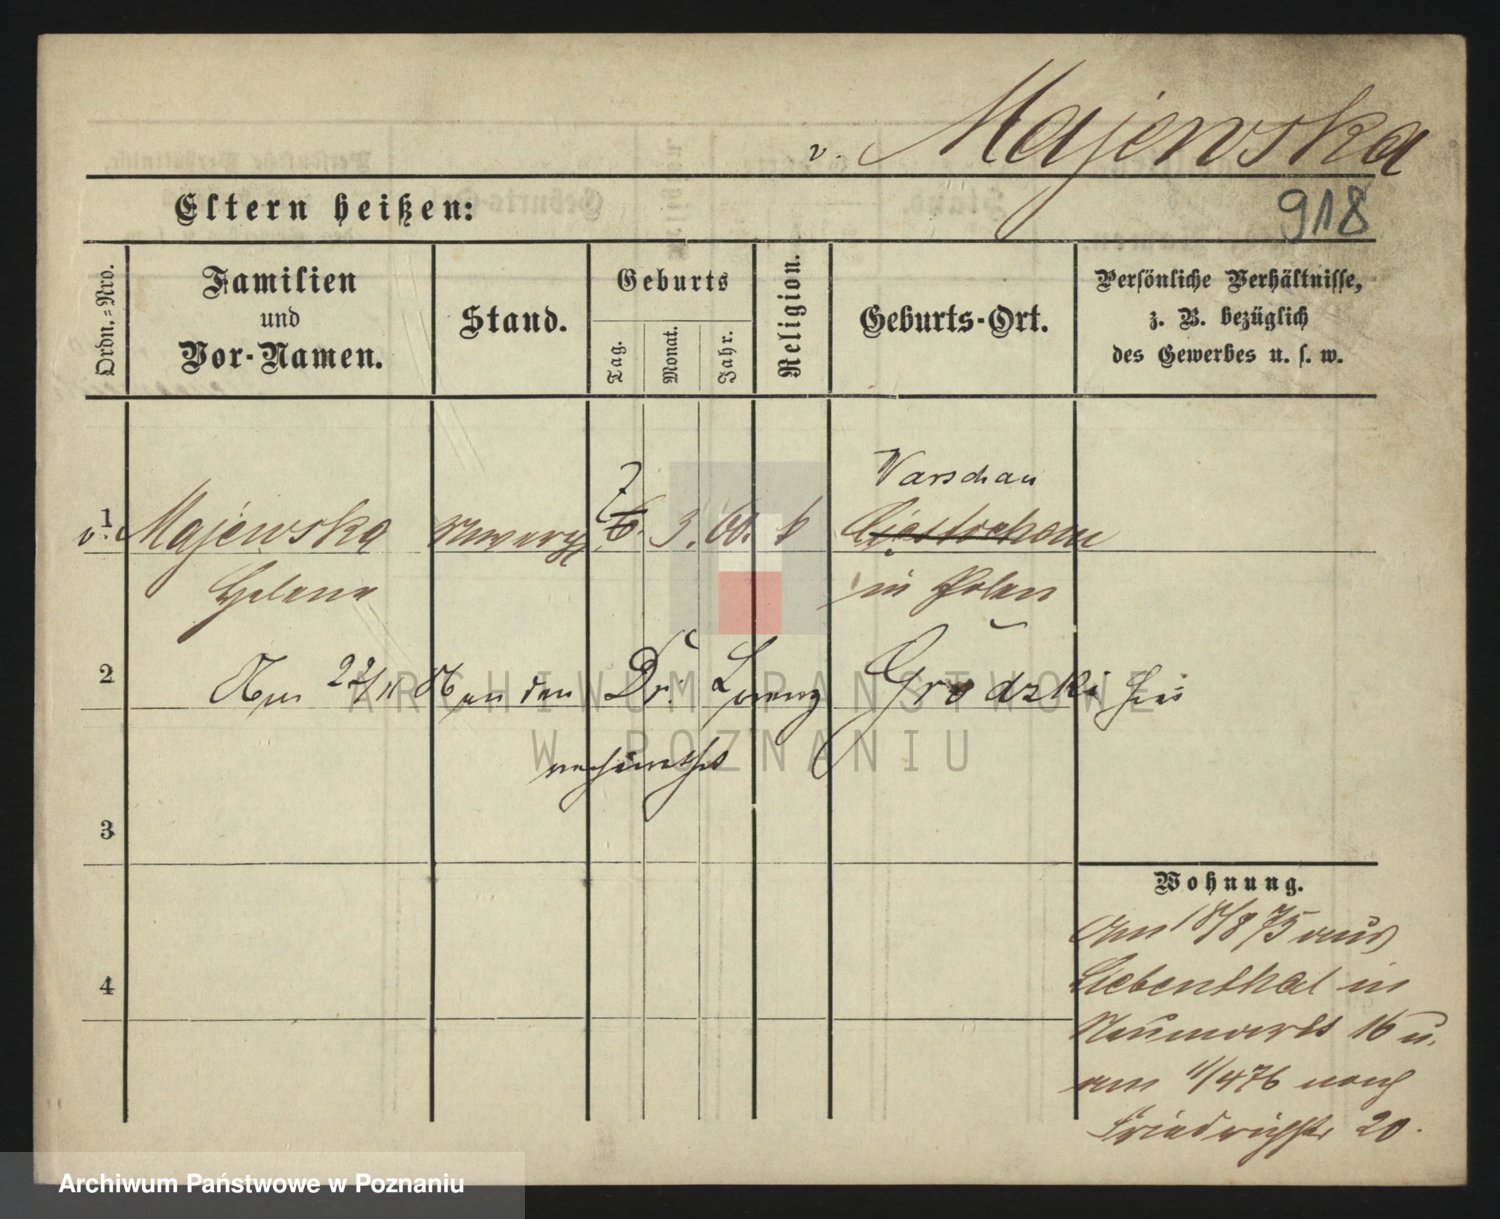 v. Majewska
Eltern heißen:
918
Ordn.=Nro.
Familien
und
Vor-Namen.
Stand.
Geburts
Tag.
Monat.
Jahr.
Religion.
Geburts-Ort.
Persönliche Verhältnisse,
z. B. bezüglich
des Gewerbes u. s. w.
Warschau
1
v. Majewska
7
6. 3. 60. k
Helena
in Polen
2
Am 22/11 an den Dr. Lorenz Grodzki hier
verheirathet
3
Wohnung.
Am 18/8 75 aus
Liebenthal in
Neumarkt 16 u.
am 1/4 76 nach
Friedrichstr 20.
4
ARCHIWUM PAŃSTWOWE
W POZNANIU
Archiwum Państwowe w Poznaniu